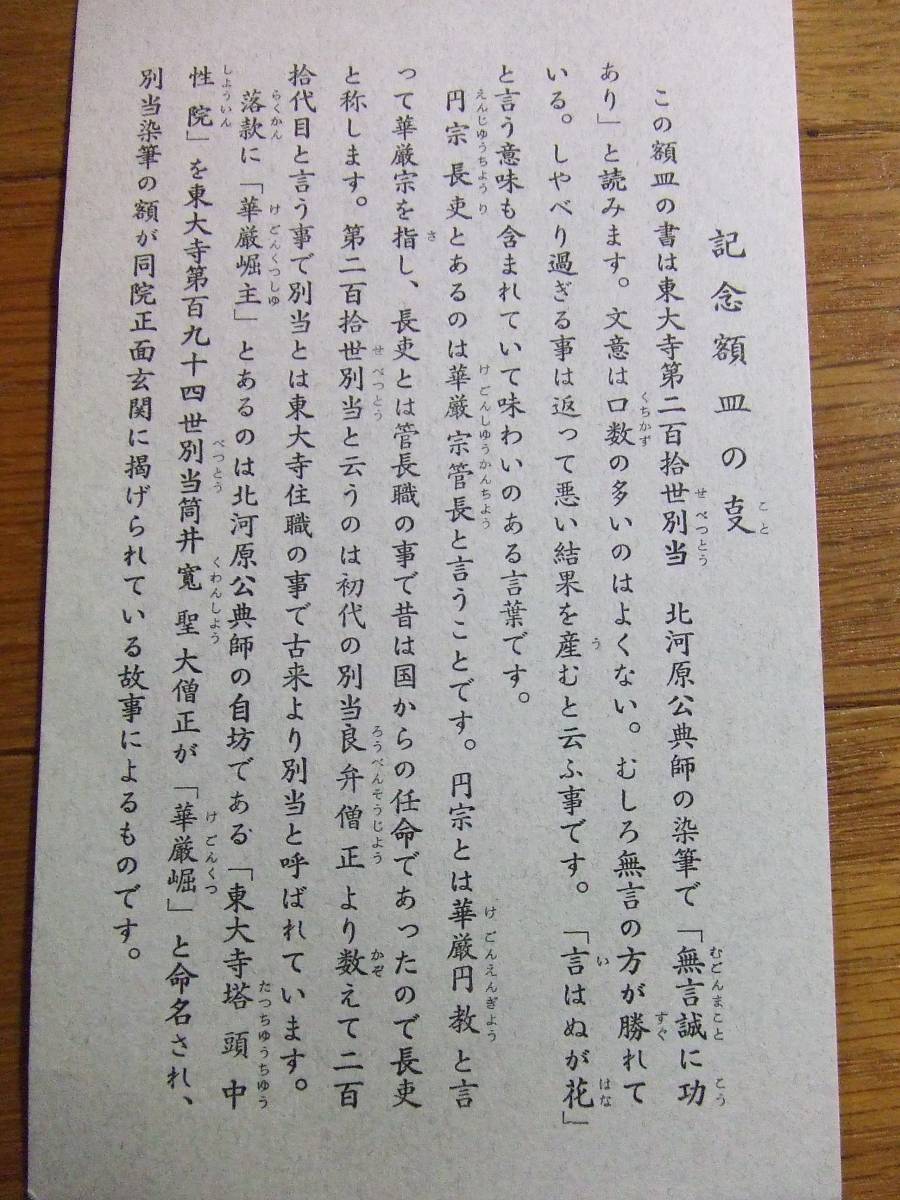 記念額皿の叓
この額皿の書は東大寺第二百拾世別当　北河原公典師の染筆で「無言誠に功
あり」と読みます。文意は口数の多いのはよくない。むしろ無言の方が勝れて
いる。しやべり過ぎる事は返って悪い結果を産むと云ふ事です。「言はぬが花」
と言う意味も含まれていて味わいのある言葉です。
円宗長吏とあるのは華厳宗管長と言うことです。円宗とは華厳円教と言
って華厳宗を指し、長吏とは管長職の事で昔は国からの任命であったので長吏
と称します。第二百拾世別当と云うのは初代の別当良弁僧正より数えて二百
拾代目と言う事で別当とは東大寺住職の事で古来より別当と呼ばれています。
落款に「華厳崛主」とあるのは北河原公典師の自坊である「東大寺塔頭中
性院」を東大寺第百九十四世別当筒井寛聖大僧正が「華厳崛」と命名され、
別当染筆の額が同院正面玄関に掲げられている故事によるものです。